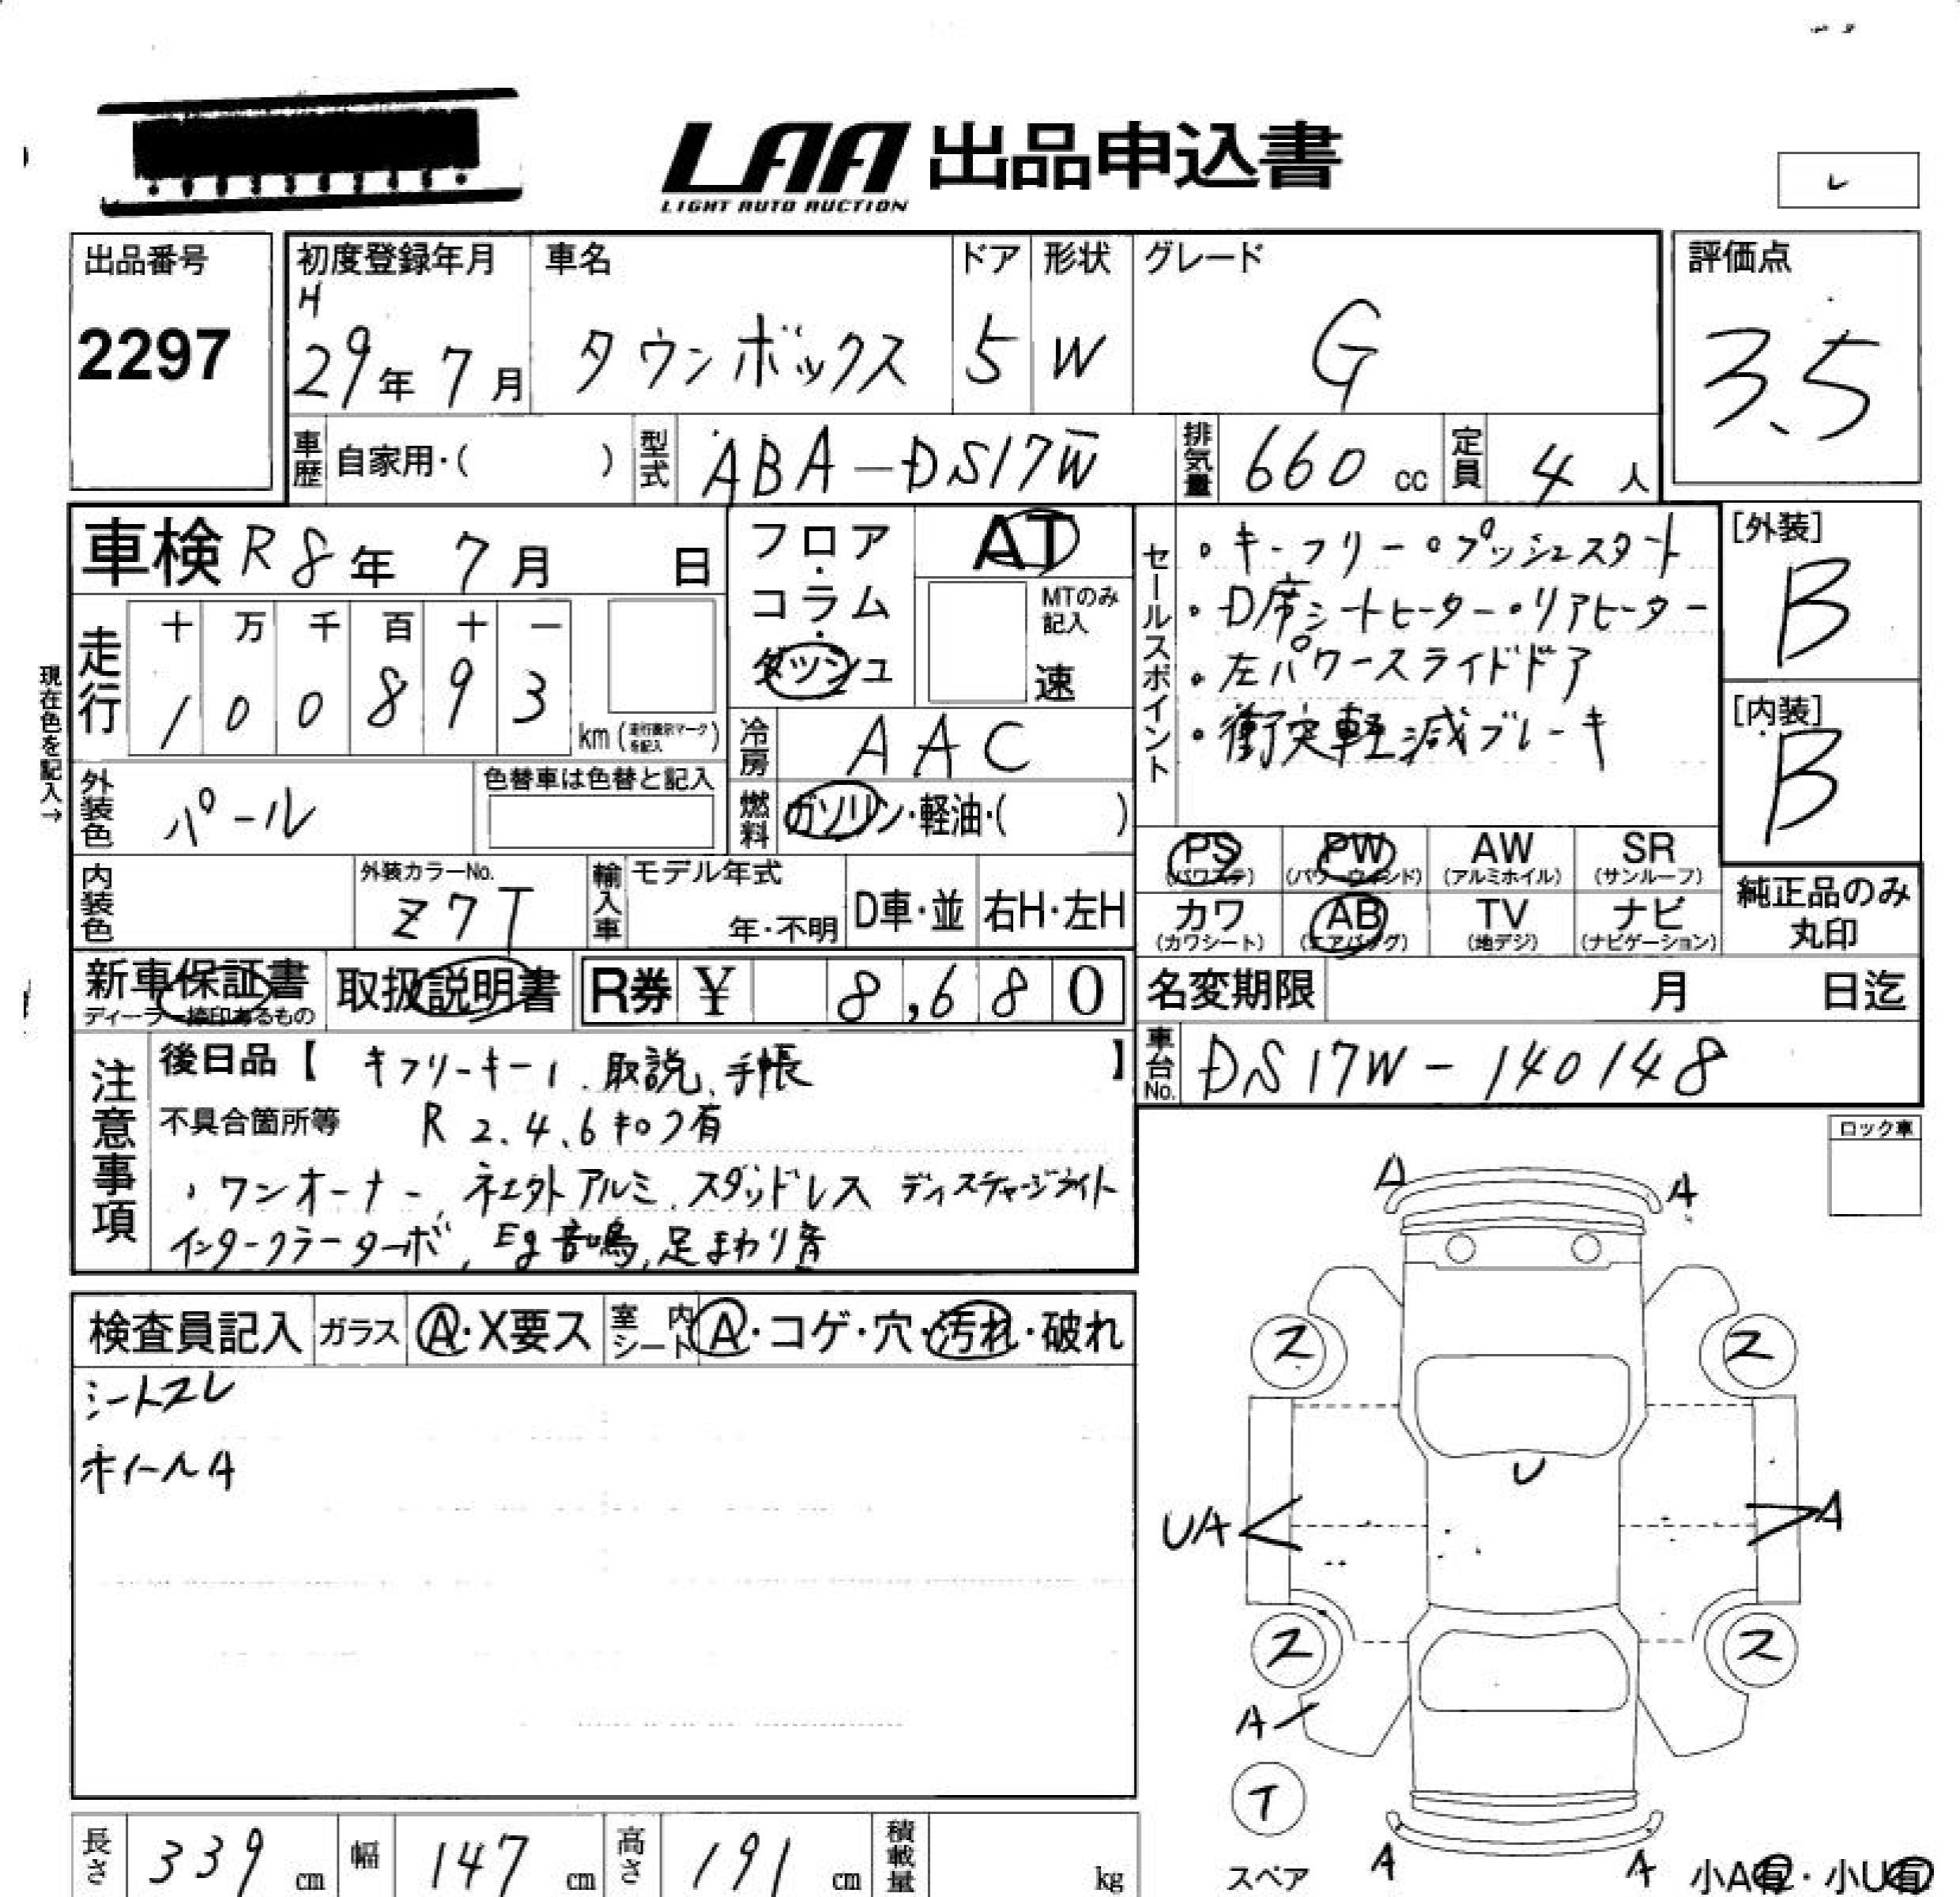 LAA 出品申込書
LIGHT AUTO AUCTION
レ
出品番号
2297
初度登録年月
H
29年 7月
車名
タウンボックス
ドア
5
形状
W
グレード
G
評価点
3.5
車歴 自家用・( )
型式 ABA-DS17W
排気量 660 cc
定員 4 人
車検 R8年 7月 日
フロア・コラム・ダッシュ
AT
MTのみ記入
速
セールスポイント
・キーフリー・プッシュスタート
・D席シートヒーター・リアヒーター
・左パワースライドドア
・衝突軽減ブレーキ
[外装]
B
[内装]
B
現在色を記入→
走行
十 万 千 百 十 一
1 0 0 8 9 3
km(走行表示マークを記入)
冷房 AAC
外装色 パール
色替車は色替と記入
燃料 ガソリン・軽油・( )
内装色
外装カラーNo.
Z7T
輸入車
モデル年式
年・不明
D車・並
右H・左H
PS (パワステ)
PW (パワーウィンド)
AW (アルミホイル)
SR (サンルーフ)
カワ (カワシート)
AB (エアバッグ)
TV (地デジ)
ナビ (ナビゲーション)
純正品のみ
丸印
新車保証書
ディーラー捺印あるもの
取扱説明書
R券 ¥ 8,680
名変期限 月 日迄
車台No. DS17W-140148
注意事項
後日品【 キフリーキー1、取説、手帳 】
不具合箇所等 R 2、4、6キロク有
、ワンオーナー、社外アルミ、スタッドレス ディスチャージライト
インタークーラーターボ、Eg音鳴、足まわり音
ロック車
検査員記入
ガラス Ⓐ・X要ス
室内シート Ⓐ・コゲ・穴・汚れ・破れ
シートスレ
ホイールA
A
A
ス
ス
U
UA
A
ス
ス
A
T
スペア
A
A
小A有・小U有
長さ 339 cm
幅 147 cm
高さ 191 cm
積載量 kg